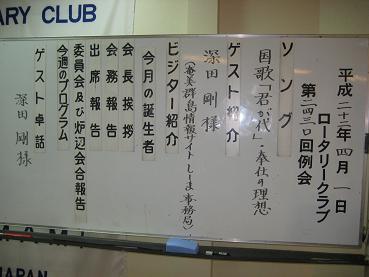 ARY CLUB
平成二十三年四月一日
ロータリークラブ
第二四三〇回例会
ソング
国歌「君が代」・奉仕の理想
ゲスト紹介
深田剛様
(奄美群島情報サイトしーま事務局)
ビジター紹介
今月の誕生者
会長挨拶
会務報告
出席報告
委員会及び炉辺会合報告
今週のプログラム
ゲスト卓話
深田剛様
JAPAN